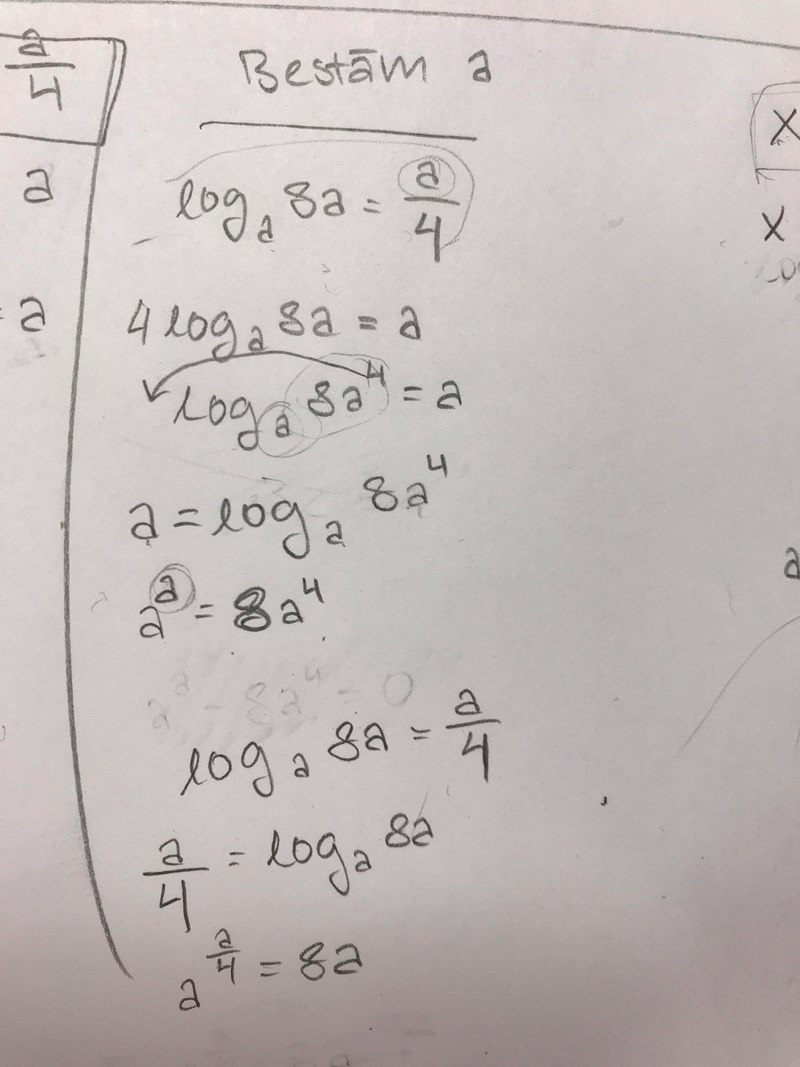 a/4
a
= a
Bestäm a
log_a 8a = a/4
4 log_a 8a = a
log_a 8a^4 = a
a = log_a 8a^4
a^a = 8a^4
a^a - 8a^4 = 0
log_a 8a = a/4
a/4 = log_a 8a
a^(a/4) = 8a
x
x
a